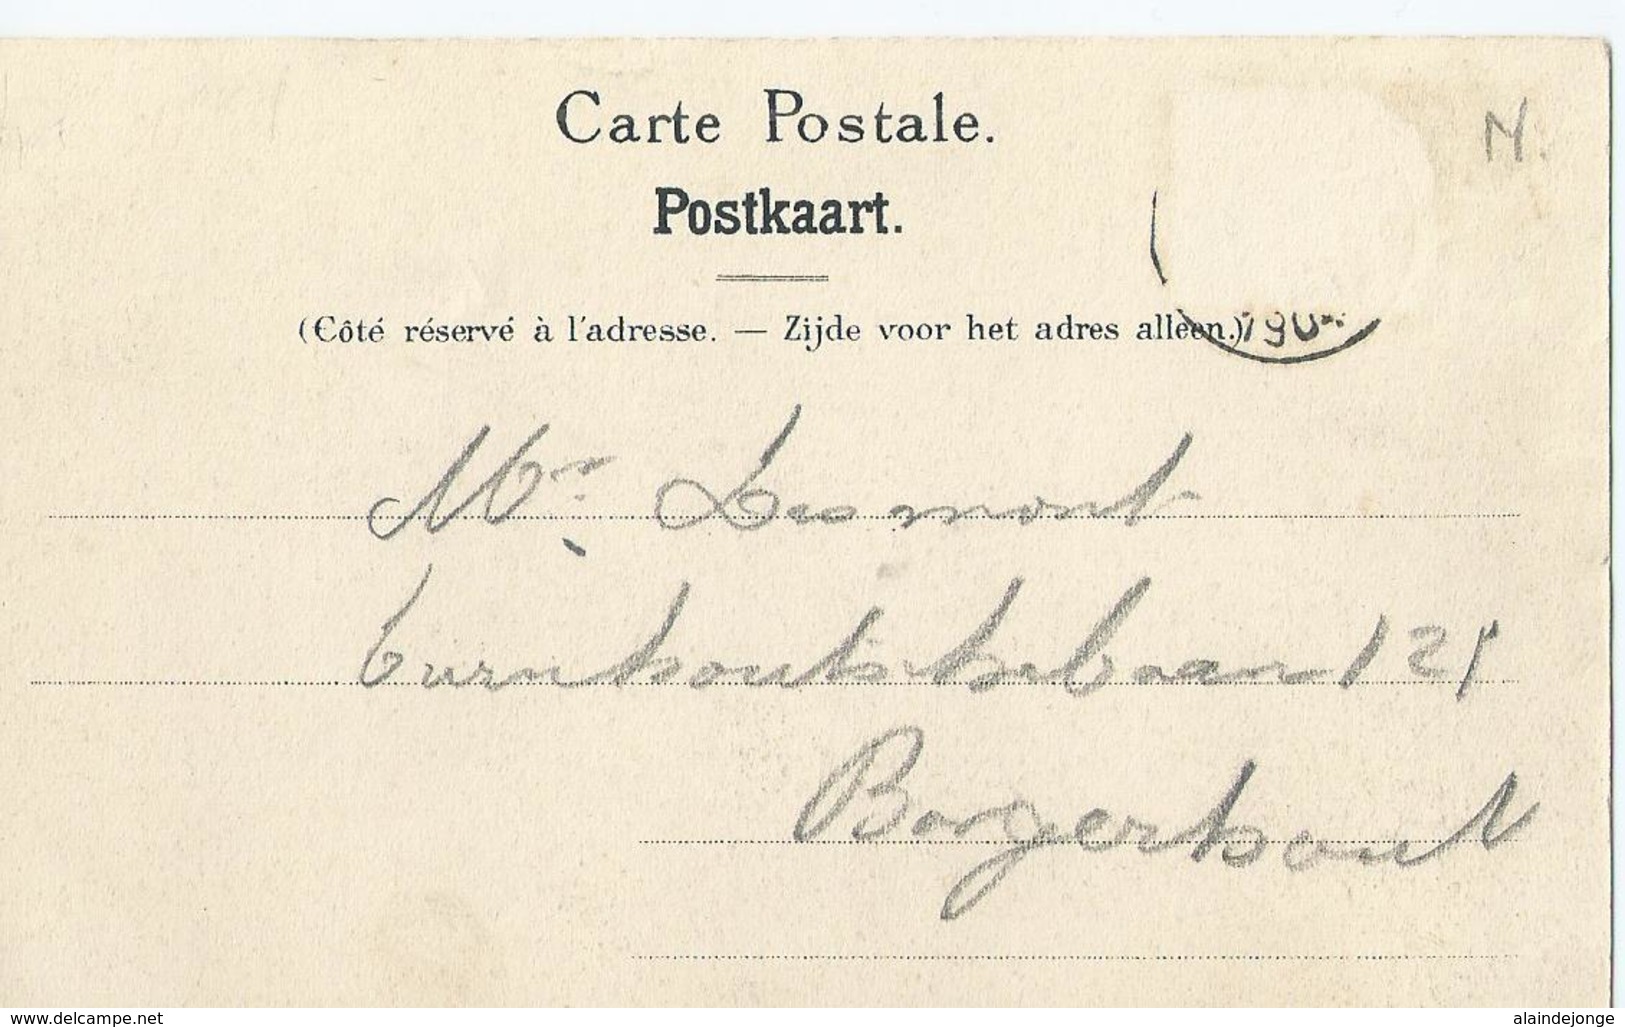 Carte Postale.
N.
Postkaart.
(Côté réservé à l'adresse. — Zijde voor het adres alleen.)
190
Mr. Desmont
Turnhoutschebaan 121
Borgerhout
www.delcampe.net
alaindejonge